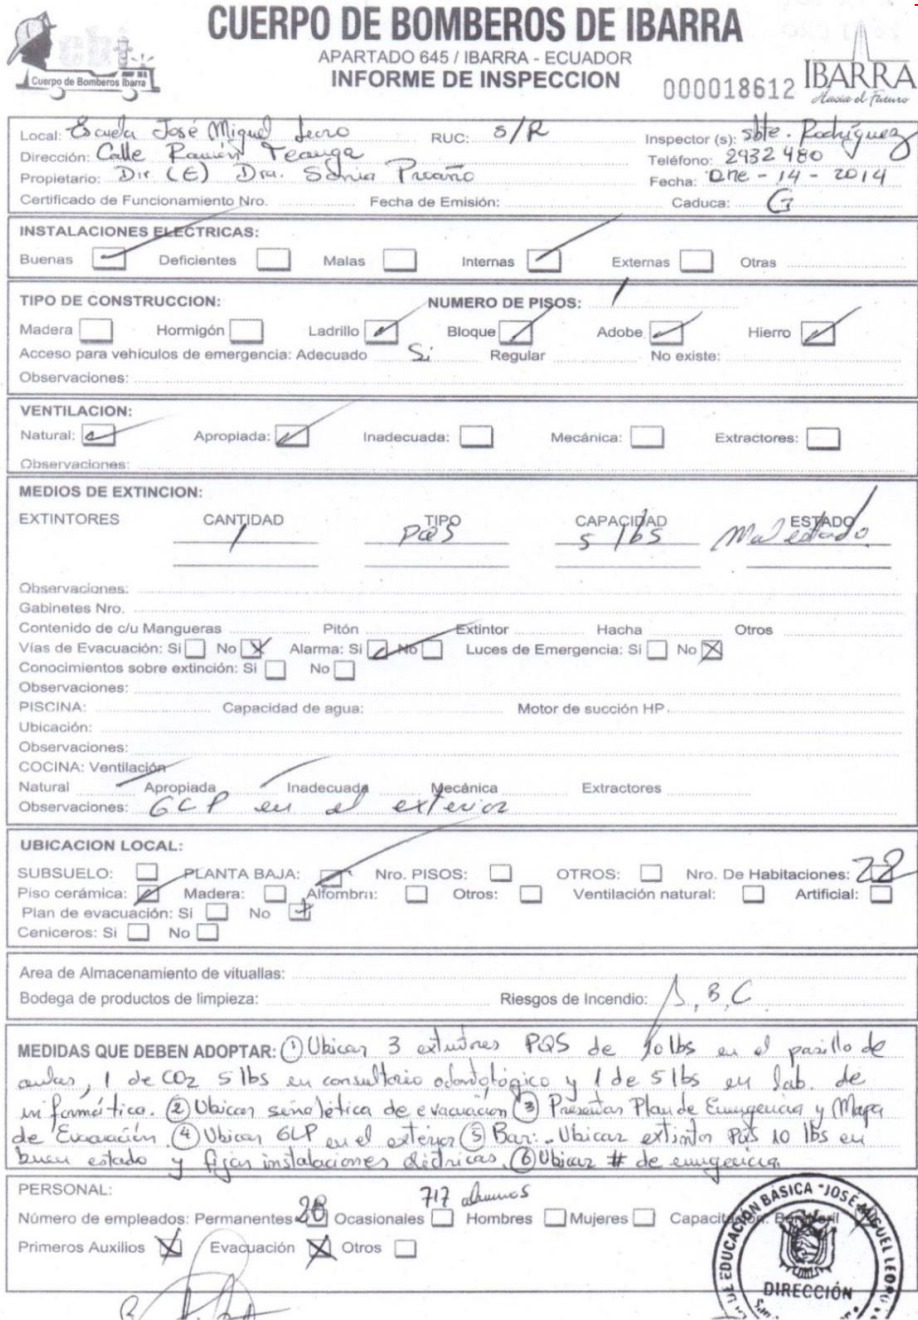 CUERPO DE BOMBEROS DE IBARRA
APARTADO 645 / IBARRA - ECUADOR
INFORME DE INSPECCION
000018612
Cuerpo de Bomberos Ibarra
IBARRA
Hacia el Futuro
Local: Escuela José Miguel Leoro RUC: S/R Inspector (s): sbte. Rodríguez
Dirección: Calle Ramón Teanga Teléfono: 2932480
Propietario: Dir (E) Dra. Sonia Proaño Fecha: Ene - 14 - 2014
Certificado de Funcionamiento Nro. Fecha de Emisión: Caduca:
INSTALACIONES ELECTRICAS:
Buenas Deficientes Malas Internas Externas Otras
TIPO DE CONSTRUCCION: NUMERO DE PISOS: 1
Madera Hormigón Ladrillo Bloque Adobe Hierro
Acceso para vehículos de emergencia: Adecuado Si Regular No existe:
Observaciones:
VENTILACION:
Natural: Apropiada: Inadecuada: Mecánica: Extractores:
Observaciones:
MEDIOS DE EXTINCION:
EXTINTORES CANTIDAD TIPO CAPACIDAD ESTADO
1 PQS 5 lbs Mal estado
Observaciones:
Gabinetes Nro.
Contenido de c/u Mangueras Pitón Extintor Hacha Otros
Vías de Evacuación: Si No X Alarma: Si No Luces de Emergencia: Si No X
Conocimientos sobre extinción: Si No
Observaciones:
PISCINA: Capacidad de agua: Motor de succión HP
Ubicación:
Observaciones:
COCINA: Ventilación
Natural Apropiada Inadecuada Mecánica Extractores
Observaciones: GLP en el exterior
UBICACION LOCAL:
SUBSUELO: PLANTA BAJA: Nro. PISOS: OTROS: Nro. De Habitaciones: 22
Piso cerámica: Madera: Alfombra: Otros: Ventilación natural: Artificial:
Plan de evacuación: Si No
Ceniceros: Si No
Area de Almacenamiento de vituallas:
Bodega de productos de limpieza: Riesgos de Incendio: A, B, C
MEDIDAS QUE DEBEN ADOPTAR: ① Ubicar 3 extintores PQS de 10 lbs en el pasillo de
aulas, 1 de CO2 5 lbs en consultorio odontológico y 1 de 5 lbs en lab. de
informática. ② Ubicar señalética de evacuación ③ Presentar Plan de Emergencia y Mapa
de Evacuación ④ Ubicar GLP en el exterior ⑤ Bar: Ubicar extintor PQS 10 lbs en
buen estado y fijar instalaciones eléctricas. ⑥ Ubicar # de emergencia
PERSONAL: 717 alumnos
Número de empleados: Permanentes 28 Ocasionales Hombres Mujeres Capacitación:
Primeros Auxilios X Evacuación X Otros
DE EDUCACIÓN BASICA "JOSE MIGUEL LEORO
DIRECCIÓN